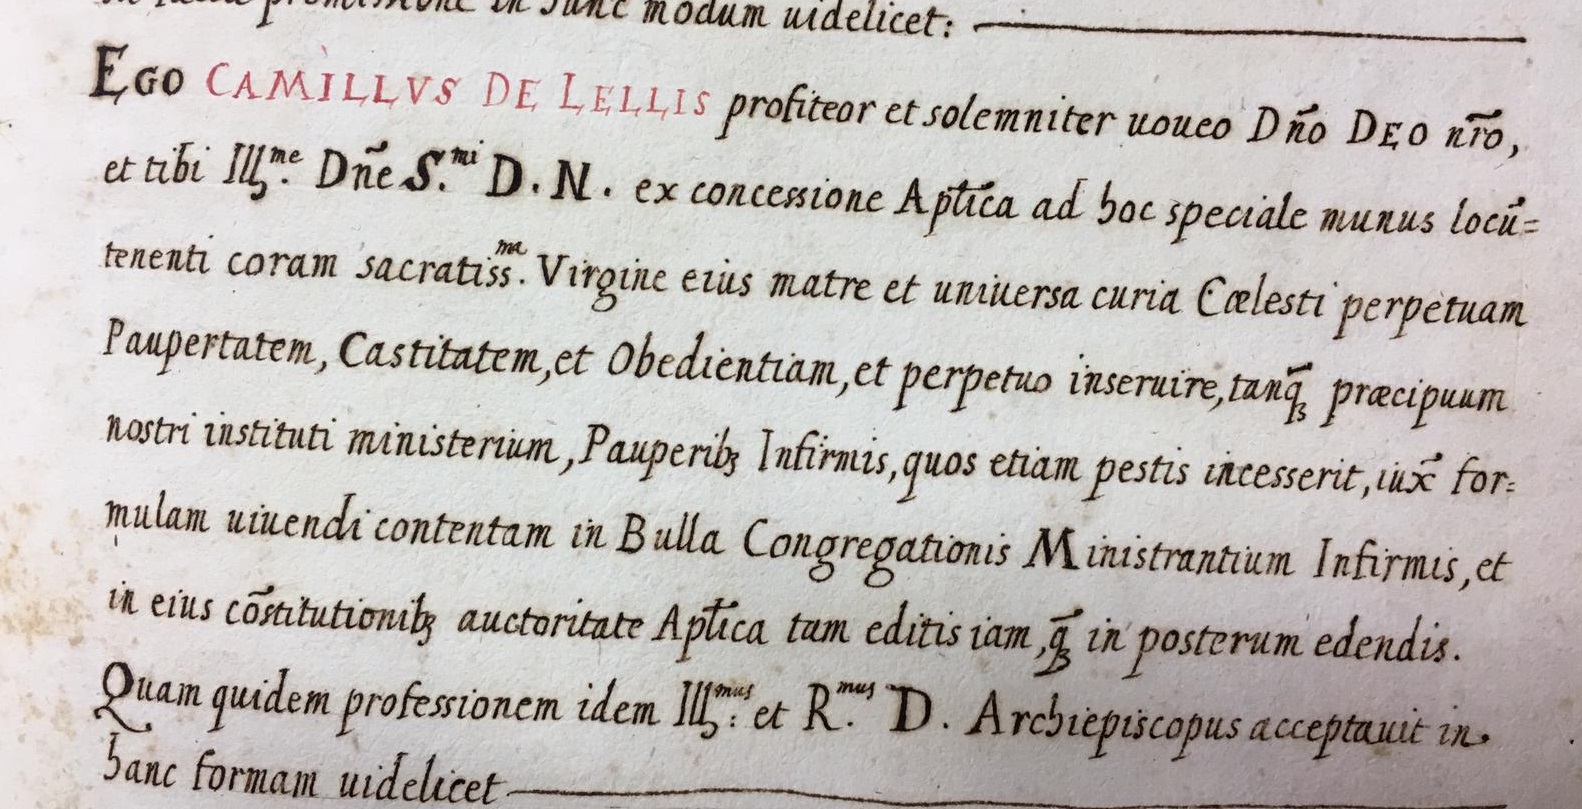 modum uidelicet:
EGO CAMILLVS DE LELLIS profiteor et solemniter uoueo Dño DEO nr̃o,
et tibi Ill.me Dñe S.mi D. N. ex concessione Apl̃ica ad hoc speciale munus locũ=
tenenti coram sacratiss.ma Virgine eius matre et uniuersa curia Cœlesti perpetuam
Paupertatem, Castitatem, et Obedientiam, et perpetuo inseruire, tanq̃ȝ præcipuum
nostri instituti ministerium, Pauperibȝ Infirmis, quos etiam pestis incesserit, iux̃ for=
mulam uiuendi contentam in Bulla Congregationis Ministrantium Infirmis, et
in eius cõstitutionibȝ auctoritate Apl̃ica tam editis iam, q̃ȝ in posterum edendis.
Quam quidem professionem idem Ill.mus et R.mus D. Archiepiscopus acceptauit in
hanc formam uidelicet